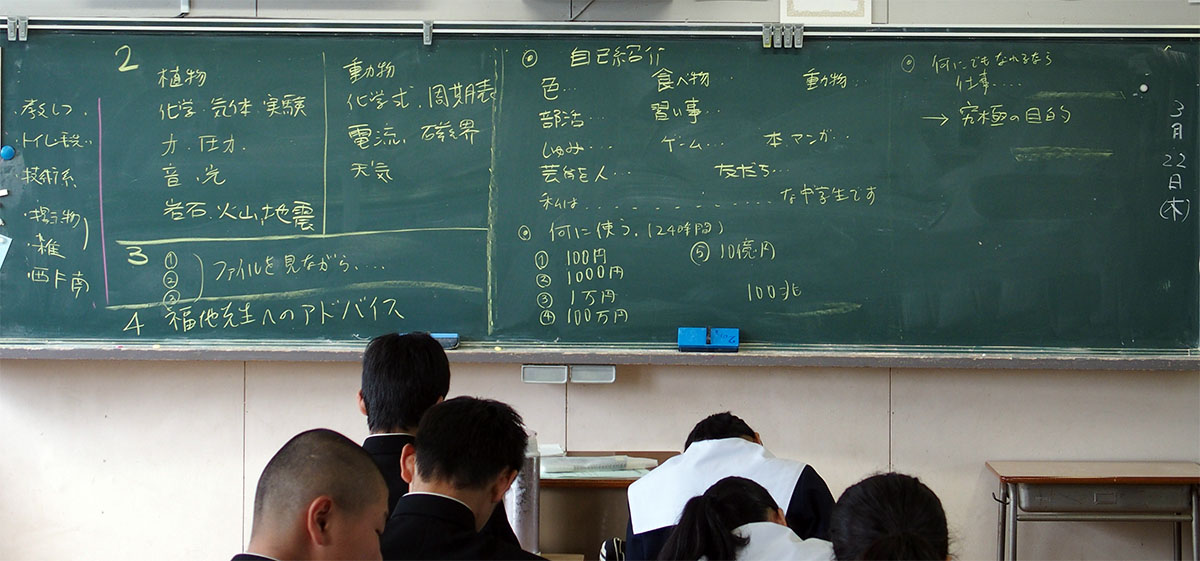 ・教しつ
・トイレ・毛
・技術系
・掲示物
・雑
2
植物
化学・気体・実験
力・圧力
音・光
岩石・火山・地震
動物
化学式・周期表
電流・磁界
天気
3
①
②
③
ファイルを見ながら・・・・
4 福地先生へのアドバイス
◎ 自己紹介
色… 食べ物… 動物…
部活… 習い事…
しゅみ… ゲーム… 本・マンガ…
芸能人… 友だち…
私は…………な中学生です
◎ 何に使う。(24時間)
① 100円
② 1000円
③ 1万円
④ 100万円
⑤ 10億円
100兆
◎ 何にでもなれるなら
仕事……
→ 究極の目的
3月22日(木)